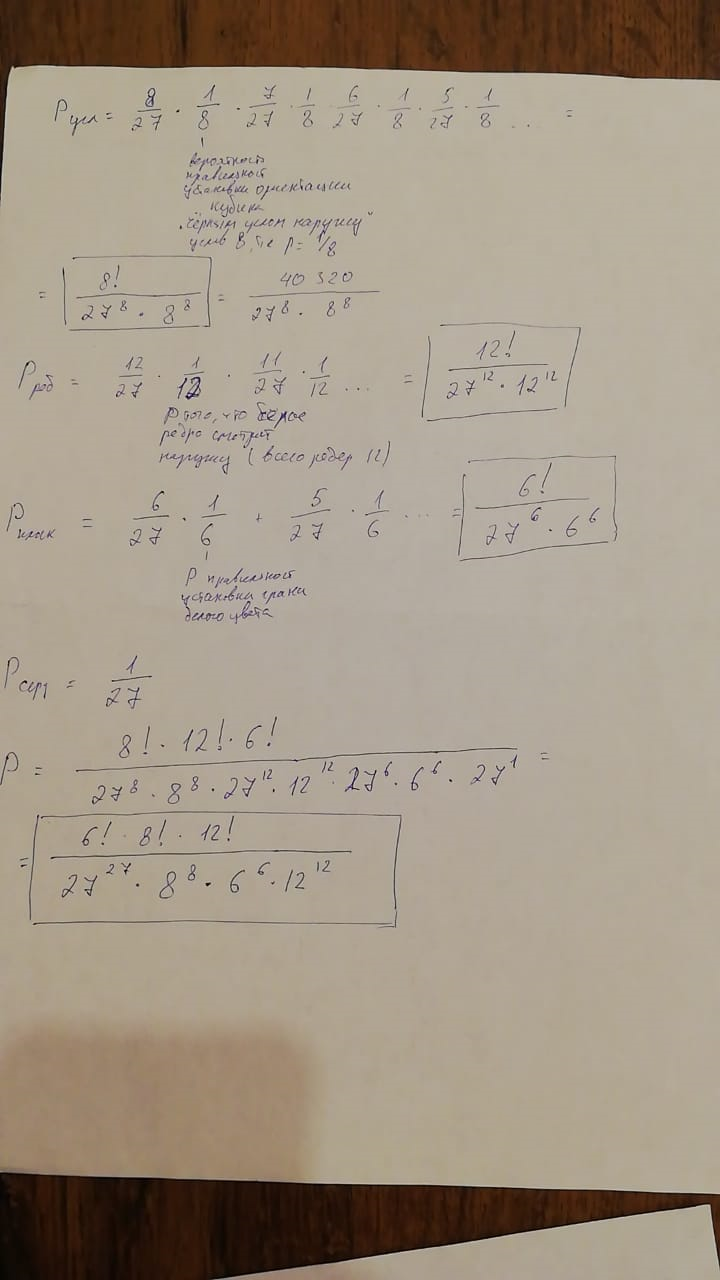 Pугл = 8/27 · 1/8 · 7/27 · 1/8 · 6/27 · 1/8 · 5/27 · 1/8 ... =
вероятность
правильност
установки ориентации
кубика
"чёрным углом наружу"
углов 8, т.е P = 1/8
= 8!/(27⁸ · 8⁸) = 40 320/(27⁸ · 8⁸)
Pреб = 12/27 · 1/12 · 11/27 · 1/12 ... = 12!/(27¹² · 12¹²)
P того, что белое
ребро смотрит
наружу (всего рёбер 12)
Pплоск = 6/27 · 1/6 + 5/27 · 1/6 ... = 6!/(27⁶ · 6⁶)
P правильност
установки грани
белого цвета
Pсерд = 1/27
P = (8! · 12! · 6!)/(27⁸ · 8⁸ · 27¹² · 12¹² · 27⁶ · 6⁶ · 27¹) =
= (6! · 8! · 12!)/(27²⁷ · 8⁸ · 6⁶ · 12¹²)